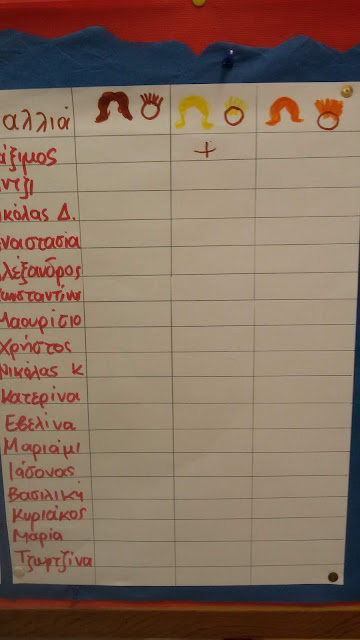 αλλιά
άξιμος +
ντζι
ικόλας Δ.
ναστασία
λέξανδρος
ωνσταντίνο
Μαουρίσιο
Χρήστος
Νικόλας Κ
Κατερίνα
Εβελίνα
Μαριάμι
Ιάσονας
Βασιλική
Κυριάκος
Μαρία
Τζωρτζίνα